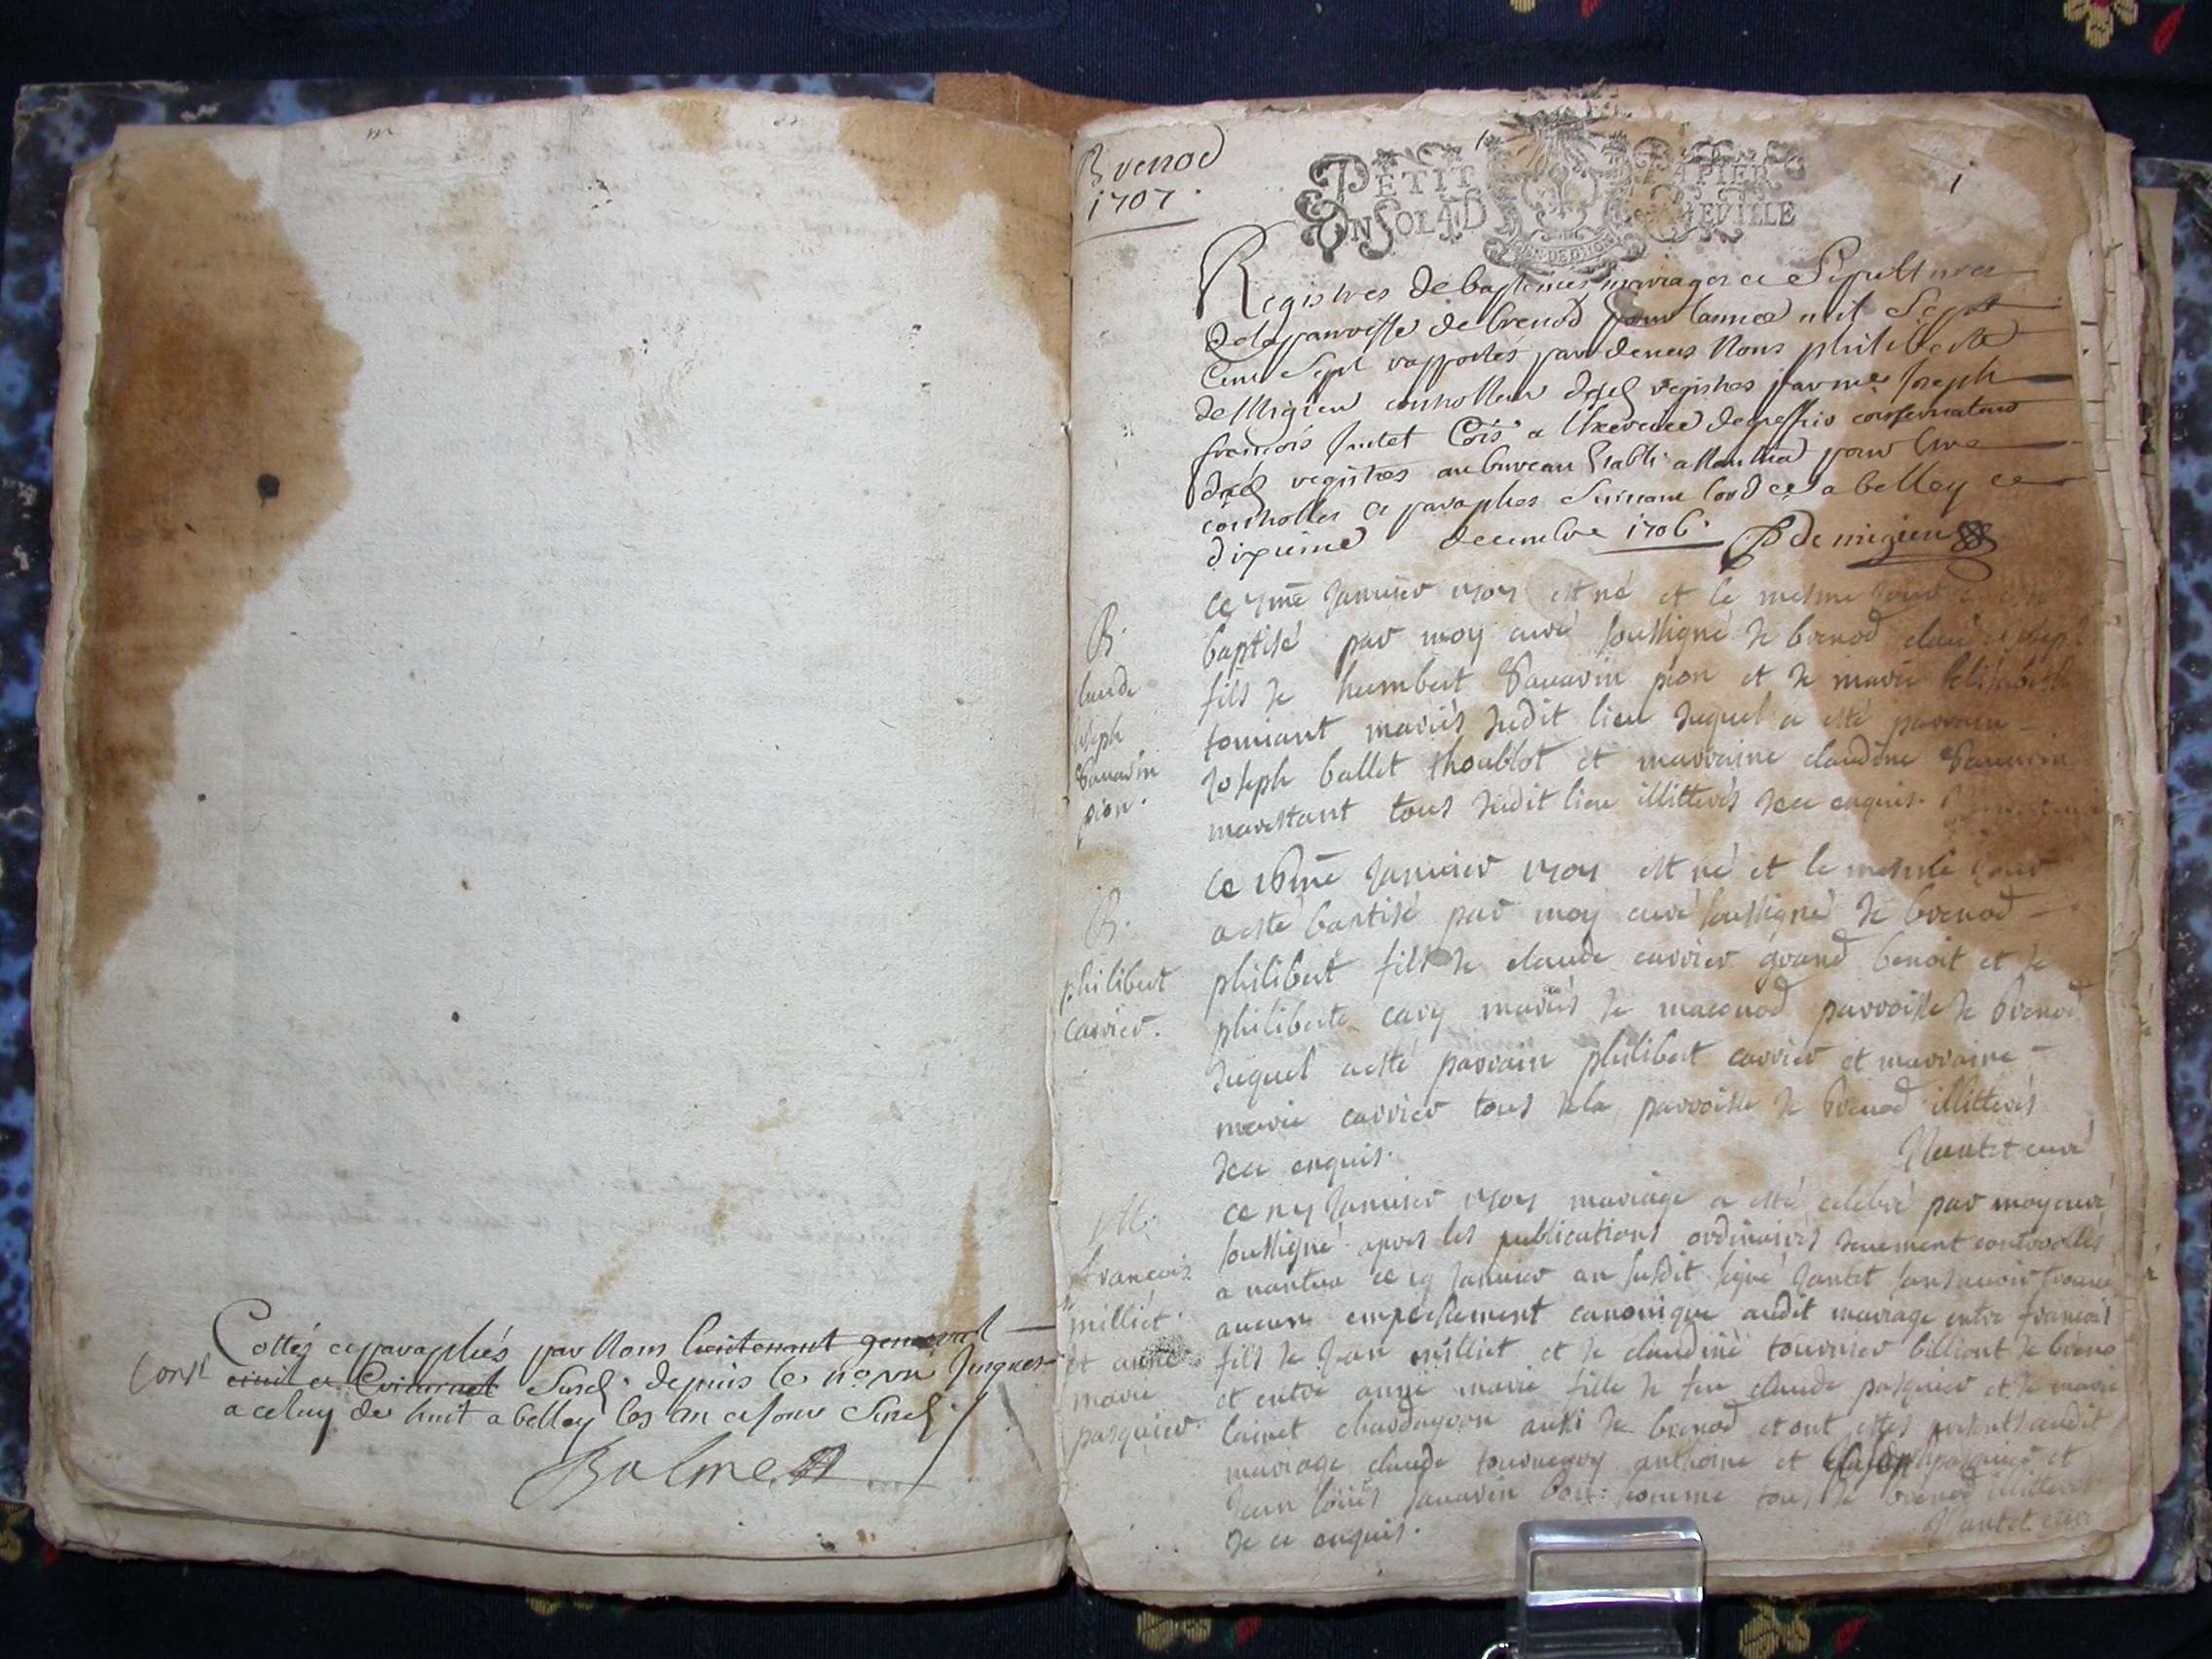 Cottés et paraphés par Nous lieutenant general
Consr civil et Criminel Susd. depuis le no un Jusques
a celuy de huit a belley les an et jour Susd.
Balme
Brenod
1707.
PETIT PAPIER
UN SOL 4 D LA FEUILLE
1
Registres de baptemes mariages et Sepultures
de la parroisse de brenod pour lannee mil Sept
Cent Sept rapportés pardevers Nous philiberte
de Migieu controlleur desd registres par me Joseph
françois Jantet Cois a lexercice de greffier conservateur
desd registres au bureau Etabli a Nantua pour Etre
controllés et paraphés Suivant lord a belley ce
dixieme decembre 1706. De migieu
B.
Claude
Joseph
Savarin
pion.
Ce 7me Janvier 1707 est né et le mesme jour a esté
baptisé par moy curé soussigné de brenod claude joseph
fils de humbert Savarin pion et de marie Elisabeth
tomiant mariés dudit lieu duquel a esté parrain
Joseph ballet thoublot et marraine claudine Savarin
marestant tous dudit lieu illitterés de ce enquis.
B.
philibert
carrier.
Ce 16me Janvier 1707 est né et le mesme jour
a esté baptisé par moy curé soussigné de brenod
philibert fils de claude carrier grand benoit et de
philiberte cary mariés de maconod parroisse de brenod
duquel a esté parrain philibert carrier et marraine
marie carrier tous de la parroisse de brenod illitterés
de ce enquis.
Nantet curé
M.
francois
milliet
et anne
marie
pasquier.
ce Janvier 1707 mariage a esté celebré par moy curé
soussigné apres les publications ordinaires deuement controollés
a nantua ce 19 Janvier an susdit signé Jantet sans avoir trouvé
aucun empeschement canonique audit mariage entre francois
fils de Jean milliet et de claudine tournier billiont de breno
et entre anne marie fille de feu claude pasquier et de marie
chardeyron aussi de brenod et ont estes presents audit
mariage claude tournery anthoine et pasquier et
Jean louis savarin bon homme tous de brenod illitterés
de ce enquis.
Nantet curé